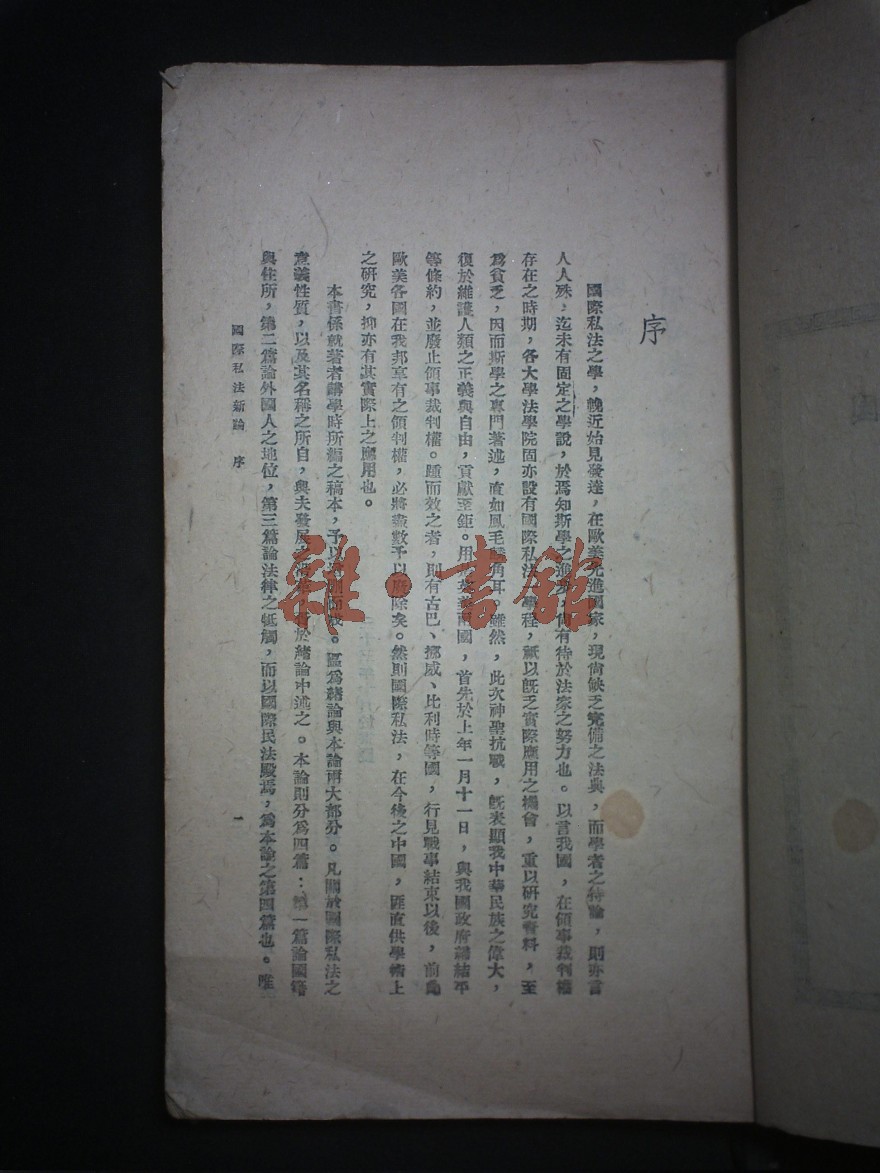 序
國際私法之學，輓近始見發達，在歐美先進國家，現尚缺乏完備之法典，而學者之持論，則亦言
人人殊，迄未有固定之學說，於焉知斯學之進步，尚有待於法家之努力也。以言我國，在領事裁判權
存在之時期，各大學法學院固亦設有國際私法學程，祇以既乏實際應用之機會，重以研究資料，至
爲貧乏，因而斯學之專門著述，直如鳳毛麟角耳。雖然，此次神聖抗戰，既表顯我中華民族之偉大，
復於維護人類之正義與自由，貢獻至鉅。用是英美兩國，首先於上年一月十一日，與我國政府締結平
等條約，並廢止領事裁判權。踵而效之者，則有古巴、挪威、比利時等國，行見戰事結束以後，前此
歐美各國在我邦享有之領判權，必將盡數予以廢除矣。然則國際私法，在今後之中國，匪直供學術上
之研究，抑亦有其實際上之應用也。
本書係就著者講學時所編之稿本，予以而成。區爲緒論與本論兩大部分。凡關於國際私法之
意義性質，以及其名稱之所自，與夫發展之，於緒論中述之。本論則分爲四篇：第一篇論國籍
與住所，第二篇論外國人之地位，第三篇論法律之牴觸，而以國際民法殿焉，爲本論之第四篇也。唯
國際私法新論 序
一
雜·書館